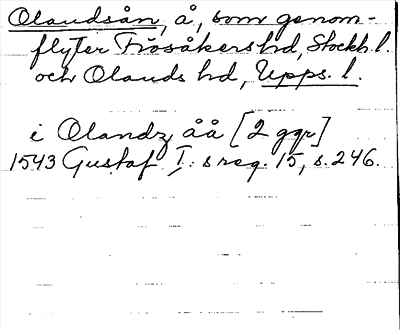 Olandsån, å, som genom-
flyter Frösåkers hd, Stockh. l.
och Olands hd, Upps. l.
i Olandz åå [2 ggr]
1543 Gustaf I:s reg. 15, s. 246.